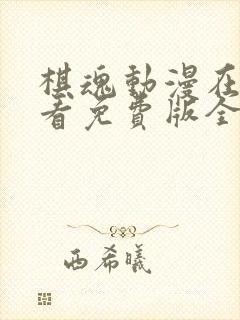 棋魂動漫在
看免費版全
西希曦